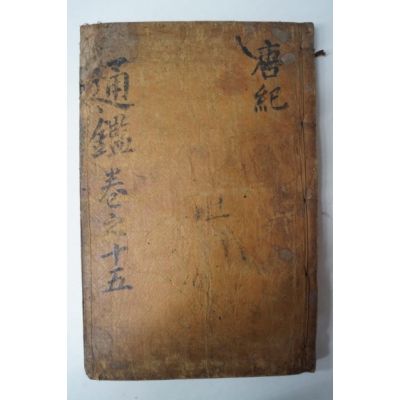 唐紀
通鑑 卷之十五